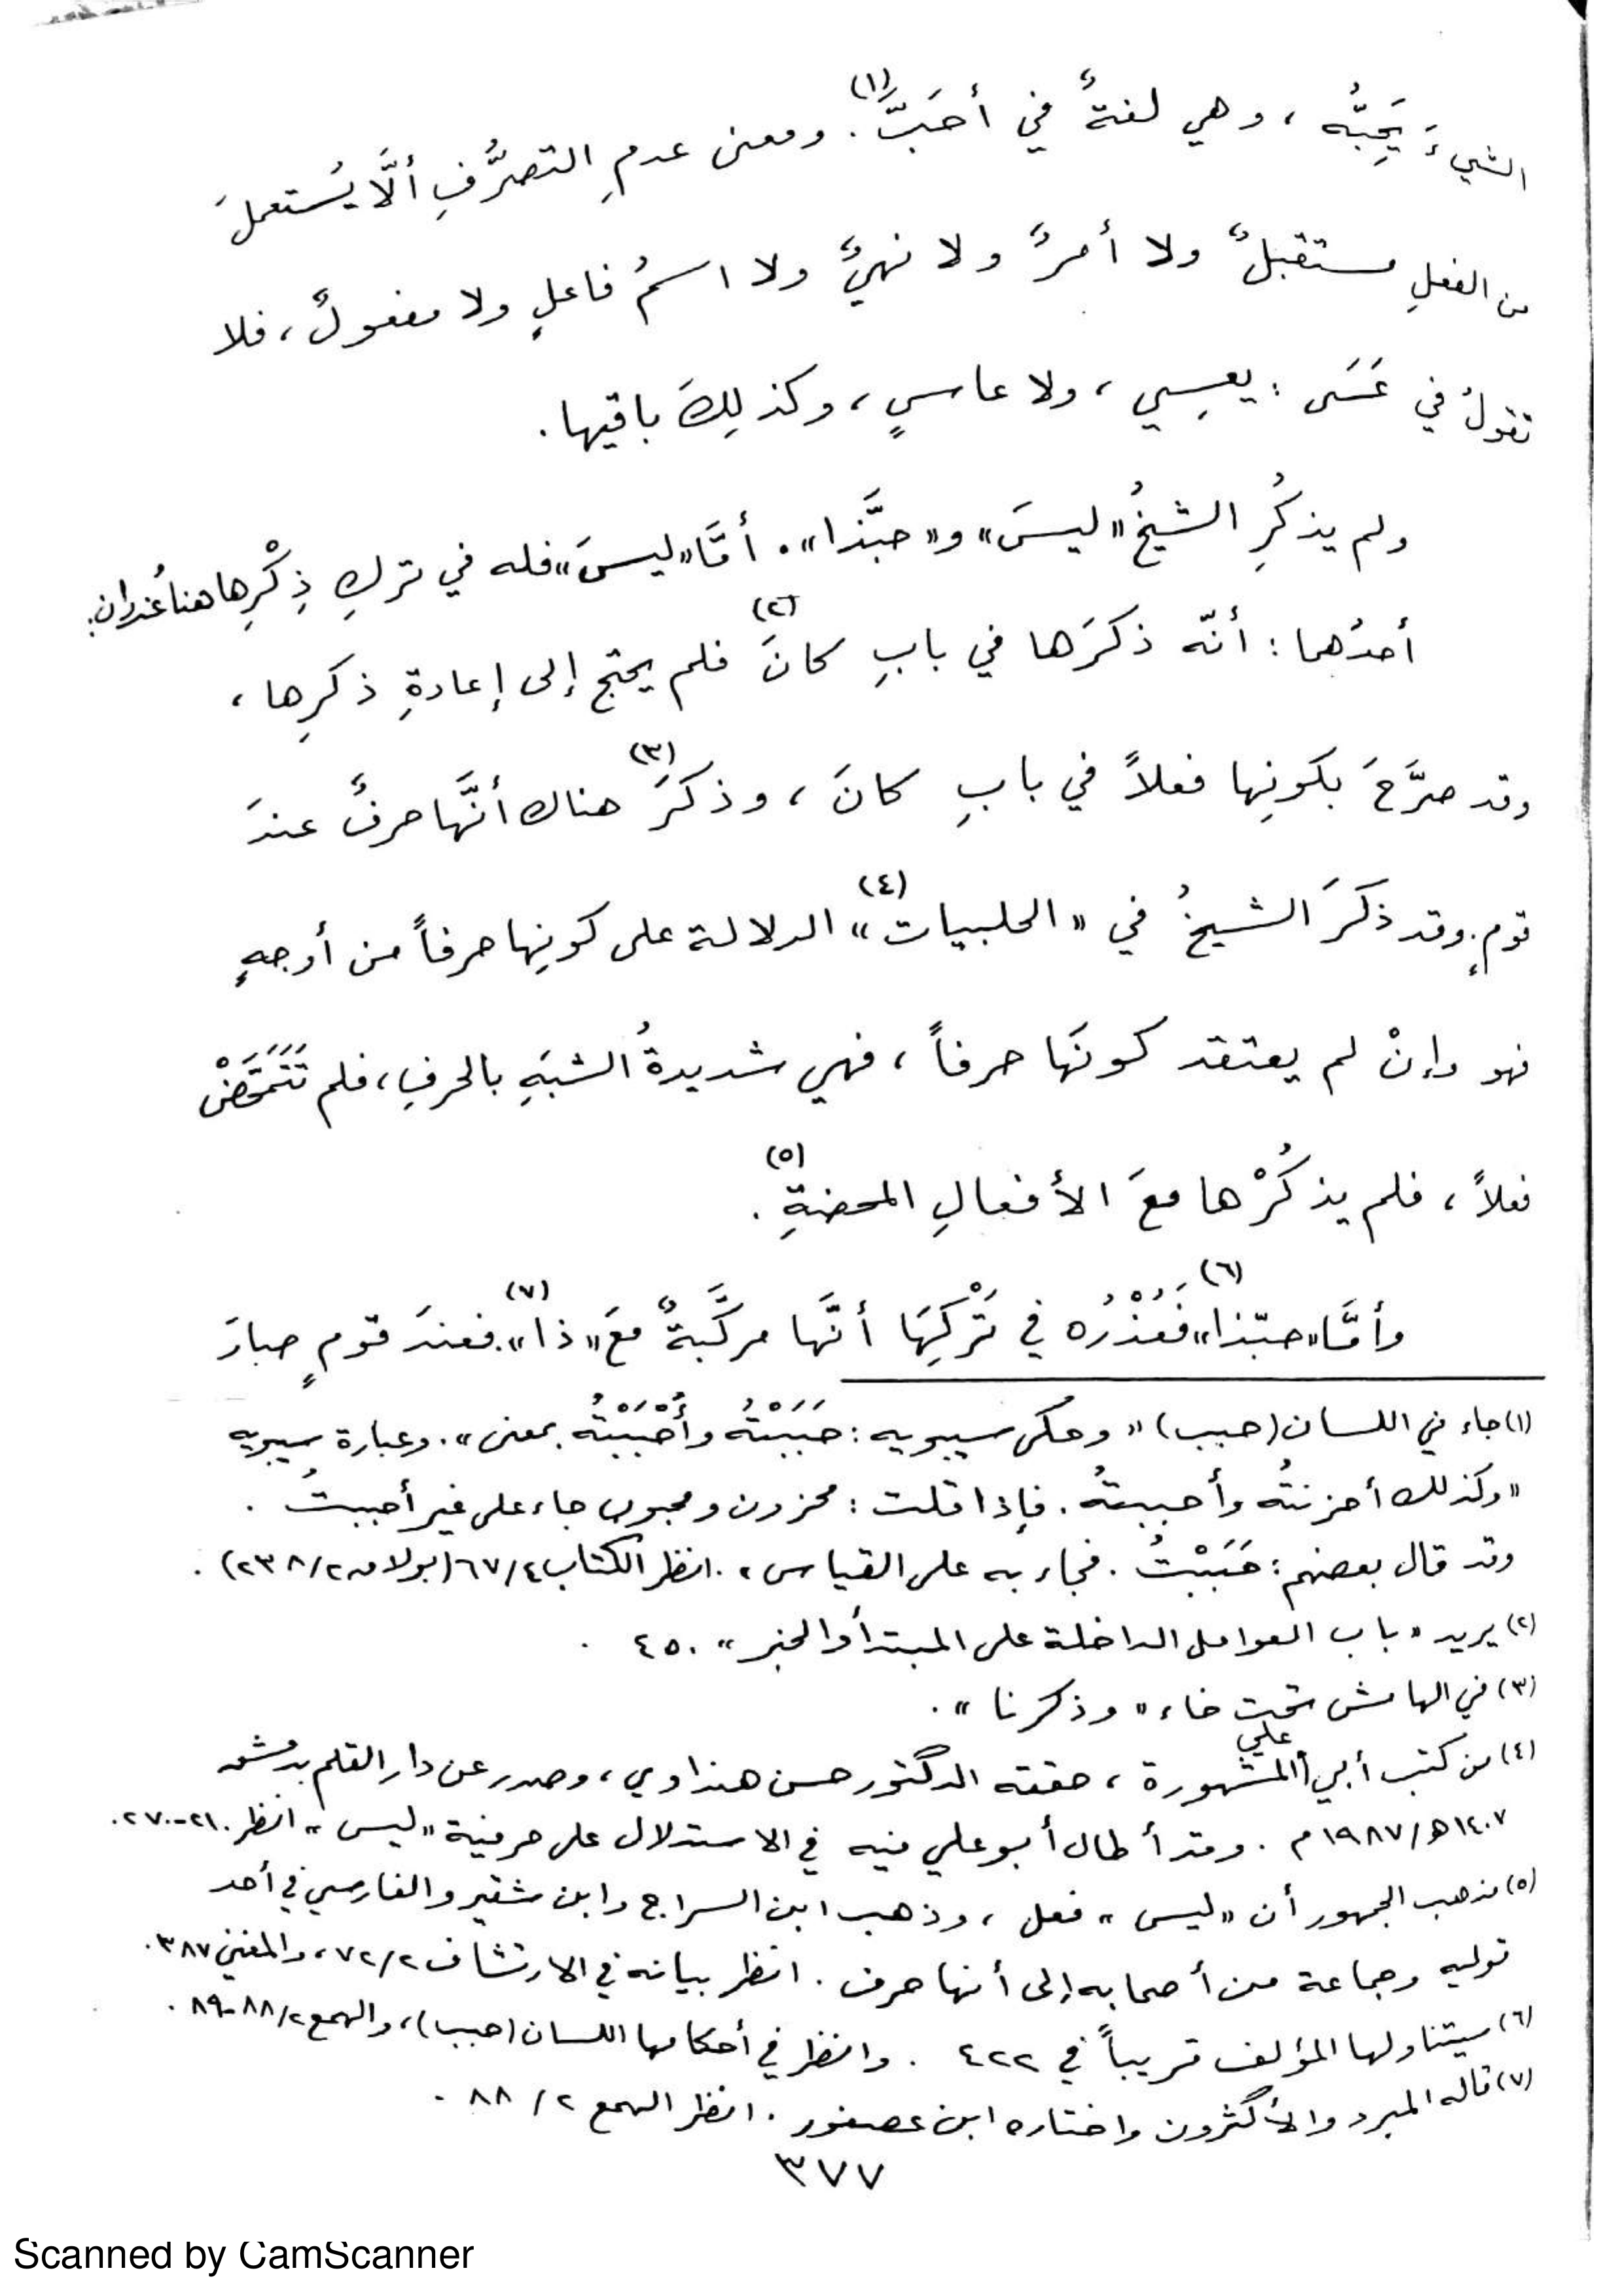 الشيءَ يَحِبُّه ، وهي لغةٌ في أحَبَّ(١). ومعنى عدمِ التصرُّفِ ألَّا يُستعملَ
من الفعلِ مستقبلٌ ولا أمرٌ ولا نهيٌ ولا اسمُ فاعلٍ ولا مفعولٌ، فلا
تقولُ في عَسَى : يعسِي ، ولا عاسٍ ، وكذلِكَ باقيها .
ولم يذكُرِ الشيخُ «ليسَ» و« حبَّذا» . أمَّا «ليسَ» فله في تركِ ذِكْرِها هنا عُذرانِ:
أحدُهما : أنّه ذكرَها في بابِ كانَ(٢) فلم يحتج إلى إعادةِ ذكرِها ،
وقد صرَّحَ بكونِها فعلاً في بابِ كانَ ، وذكَرَ(٣) هناك أنَّها حرفٌ عندَ
قومٍ. وقد ذكَرَ الشيخُ في « الحلبيات(٤)» الدلالة على كونِها حرفاً من أوجهٍ
فهو وإنْ لم يعتقد كونَها حرفاً ، فهي شديدةُ الشبَهِ بالحرفِ، فلم تَتَمَحَّضْ
فعلاً ، فلم يذكُرْها معَ الأفعالِ المحضةِ(٥) .
وأمَّا «حبّذا»(٦) فَعُذْرُه في تَرْكِهَا أنَّها مركَّبةٌ معَ «ذا»(٧). فعندَ قومٍ صارَ
(١) جاء في اللسان (حبب) « وحكى سيبويه : حَبَبْتُه وأَحْبَبْتُه بمعنى » . وعبارة سيبويه
« وكذلك أحزنتُه وأحببتُه . فإذا قلت : محزون ومحبوب جاء على غير أحببتُ .
وقد قال بعضهم : حَبَبْتُ . فجاء به على القياس » . انظر الكتاب ٦٧/٤ (بولاق ٢٣٨/٢) .
(٢) يريد « باب العوامل الداخلة على المبتدأ والخبر » ٤٥٠ .
(٣) في الهامش تحت خاء « وذكرنا » .
(٤) من كتب أبي علي المشهورة ، حققه الدكتور حسن هنداوي ، وصدر عن دار القلم بدمشق
١٤٠٧هـ/ ١٩٨٧م . وقد أطال أبو علي فيه في الاستدلال على حرفية «ليس » انظر ٢١٠-٢٧٠.
(٥) مذهب الجمهور أن «ليس » فعل ، وذهب ابن السراج وابن شقير والفارسي في أحد
قوليه وجماعة من أصحابه إلى أنها حرف . انظر بيانه في الارتشاف ٧٢/٢ ، والمغني ٣٨٧.
(٦) سيتناولها المؤلف قريباً في ٤٢٢ . وانظر في أحكامها اللسان (حبب) ، والهمع ٨٨/٢-٨٩ .
(٧) قاله المبرد والأكثرون واختاره ابن عصفور . انظر الهمع ٢ / ٨٨ .
٣٧٧
Scanned by CamScanner